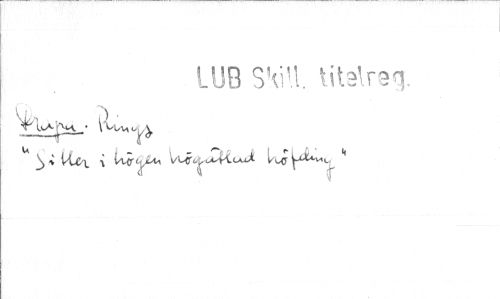 LUB Skill. titelreg.
Drapa. Rings
"Sitter i högen högättad höfding"